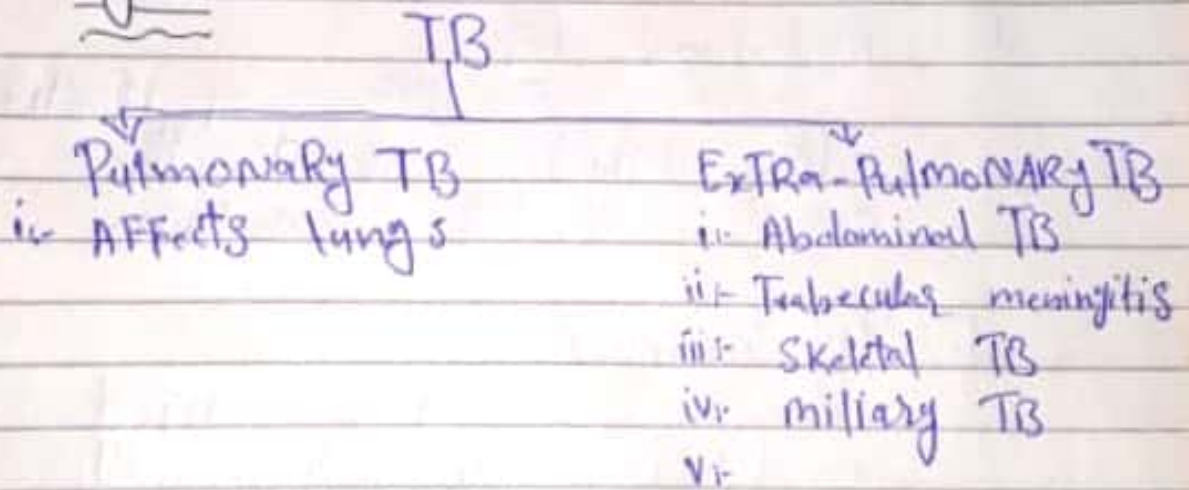 TB
Pulmonary TB
i:- Affects lungs
Extra-Pulmonary TB
i:- Abdominal TB
ii:- Trabecular meningitis
iii:- Skeletal TB
iv:- miliary TB
v:-